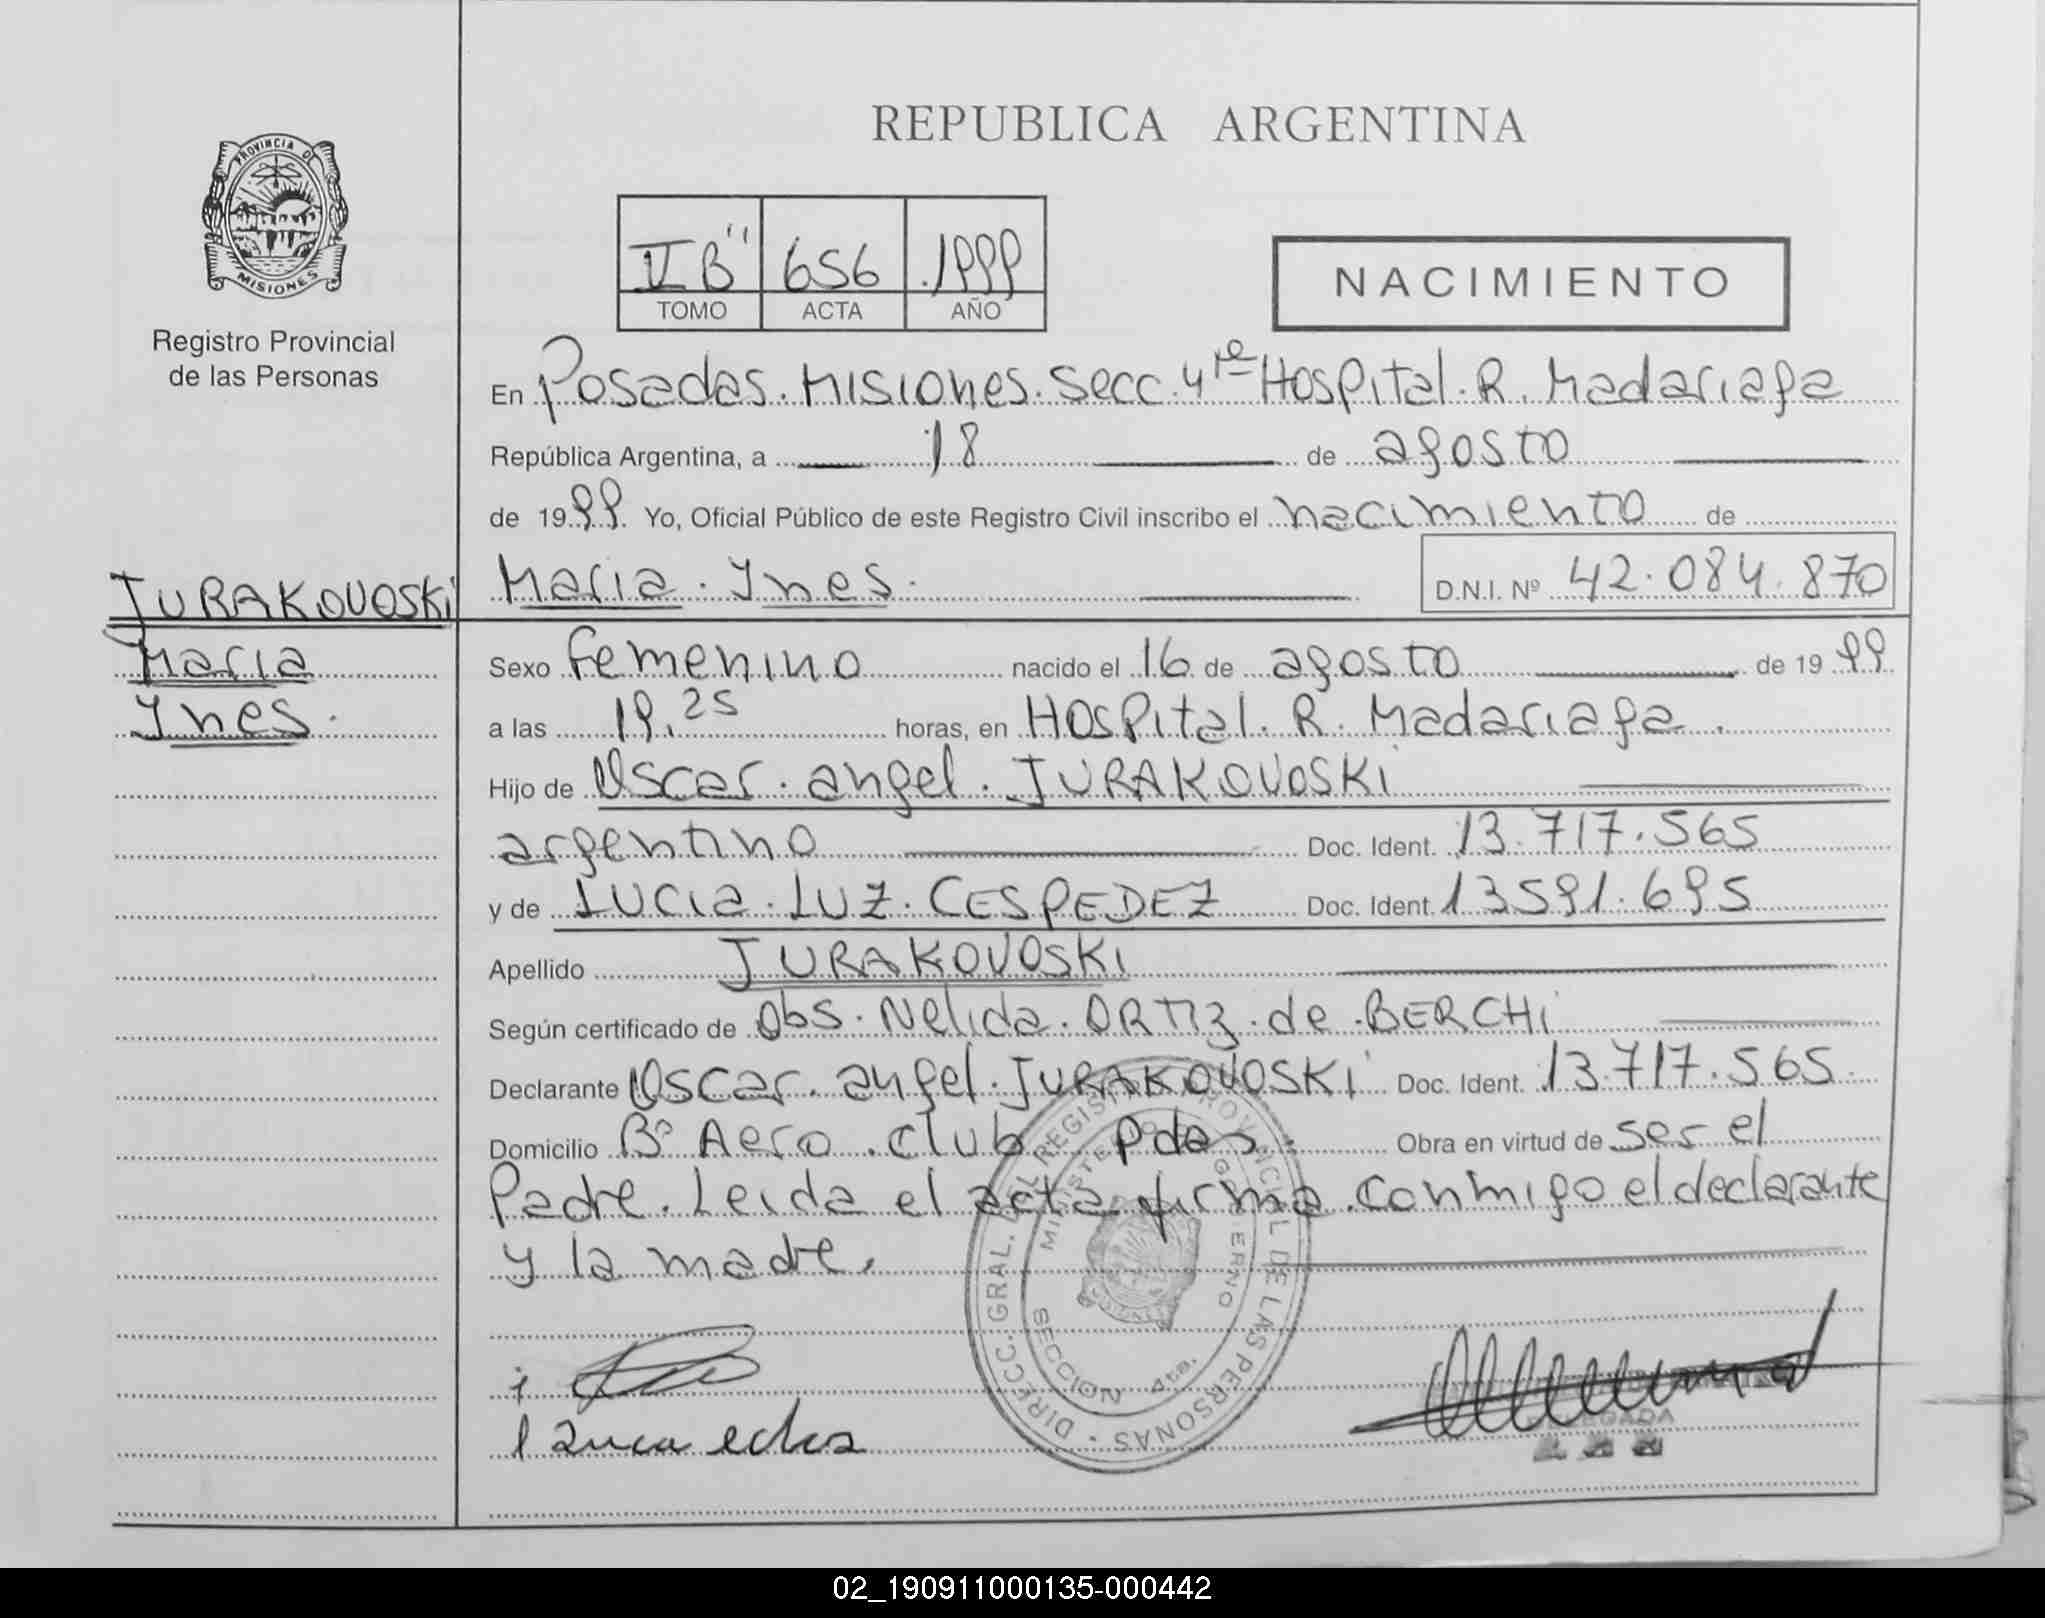 REPUBLICA ARGENTINA
PROVINCIA D
MISIONES
Registro Provincial
de las Personas
II B" 656 1999
TOMO ACTA AÑO
NACIMIENTO
En Posadas. Misiones. Secc. 4ta Hospital. R. Madariaga
República Argentina, a 18 de agosto
de 1999. Yo, Oficial Público de este Registro Civil inscribo el nacimiento de
Maria. Ynes. D.N.I. Nº 42.084.870
JURAKOVOSKi
Maria
Ynes.
Sexo Femenino nacido el 16 de agosto de 1999
a las 19.25 horas, en Hospital. R. Madariaga.
Hijo de Oscar. angel. JURAKOVOSKi
argentino Doc. Ident. 13.717.565
y de Lucia. Luz. CESPEDEZ Doc. Ident. 13591.695
Apellido JURAKOVOSKi
Según certificado de Obs. Nelida. ORTiz. de. BERCHi
Declarante Oscar. angel. JURAKOVOSKi Doc. Ident. 13.717.565.
Domicilio Bº Aero. Club Pdas. Obra en virtud de ser el
Padre. Leida el acta firma conmigo el declarante
y la madre.
DIRECC. GRAL. DEL REGISTRO PROVINCIAL DE LAS PERSONAS
MINISTERIO GOBIERNO
SECCION 4ta.
02_190911000135-000442